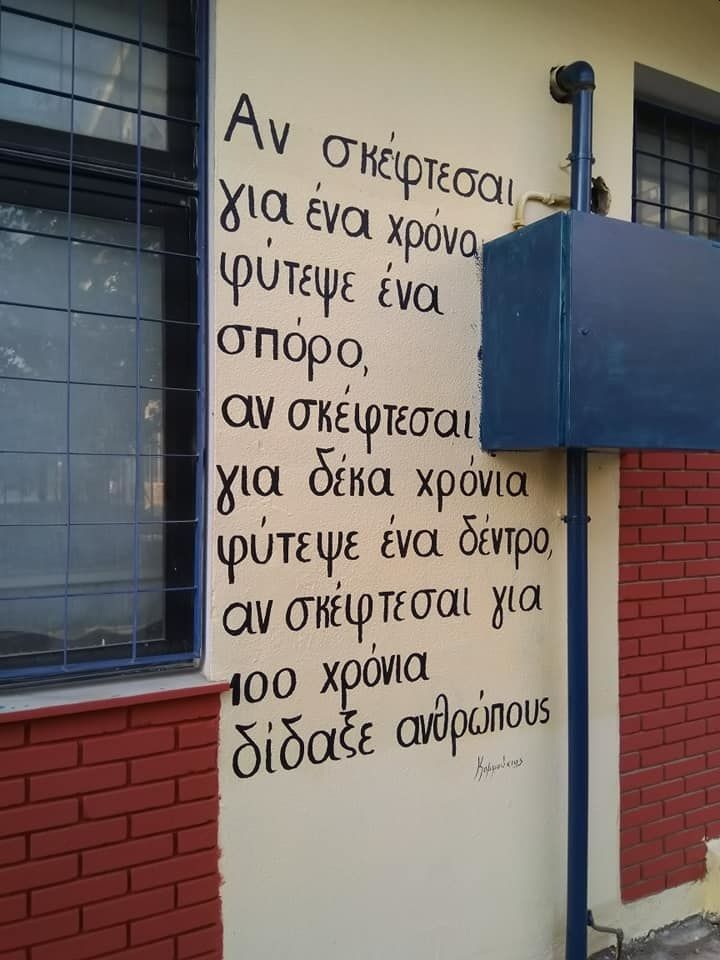 Αν σκέφτεσαι
για ένα χρόνο
φύτεψε ένα
σπόρο,
αν σκέφτεσαι
για δέκα χρόνια
φύτεψε ένα δέντρο,
αν σκέφτεσαι για
100 χρόνια
δίδαξε ανθρώπους